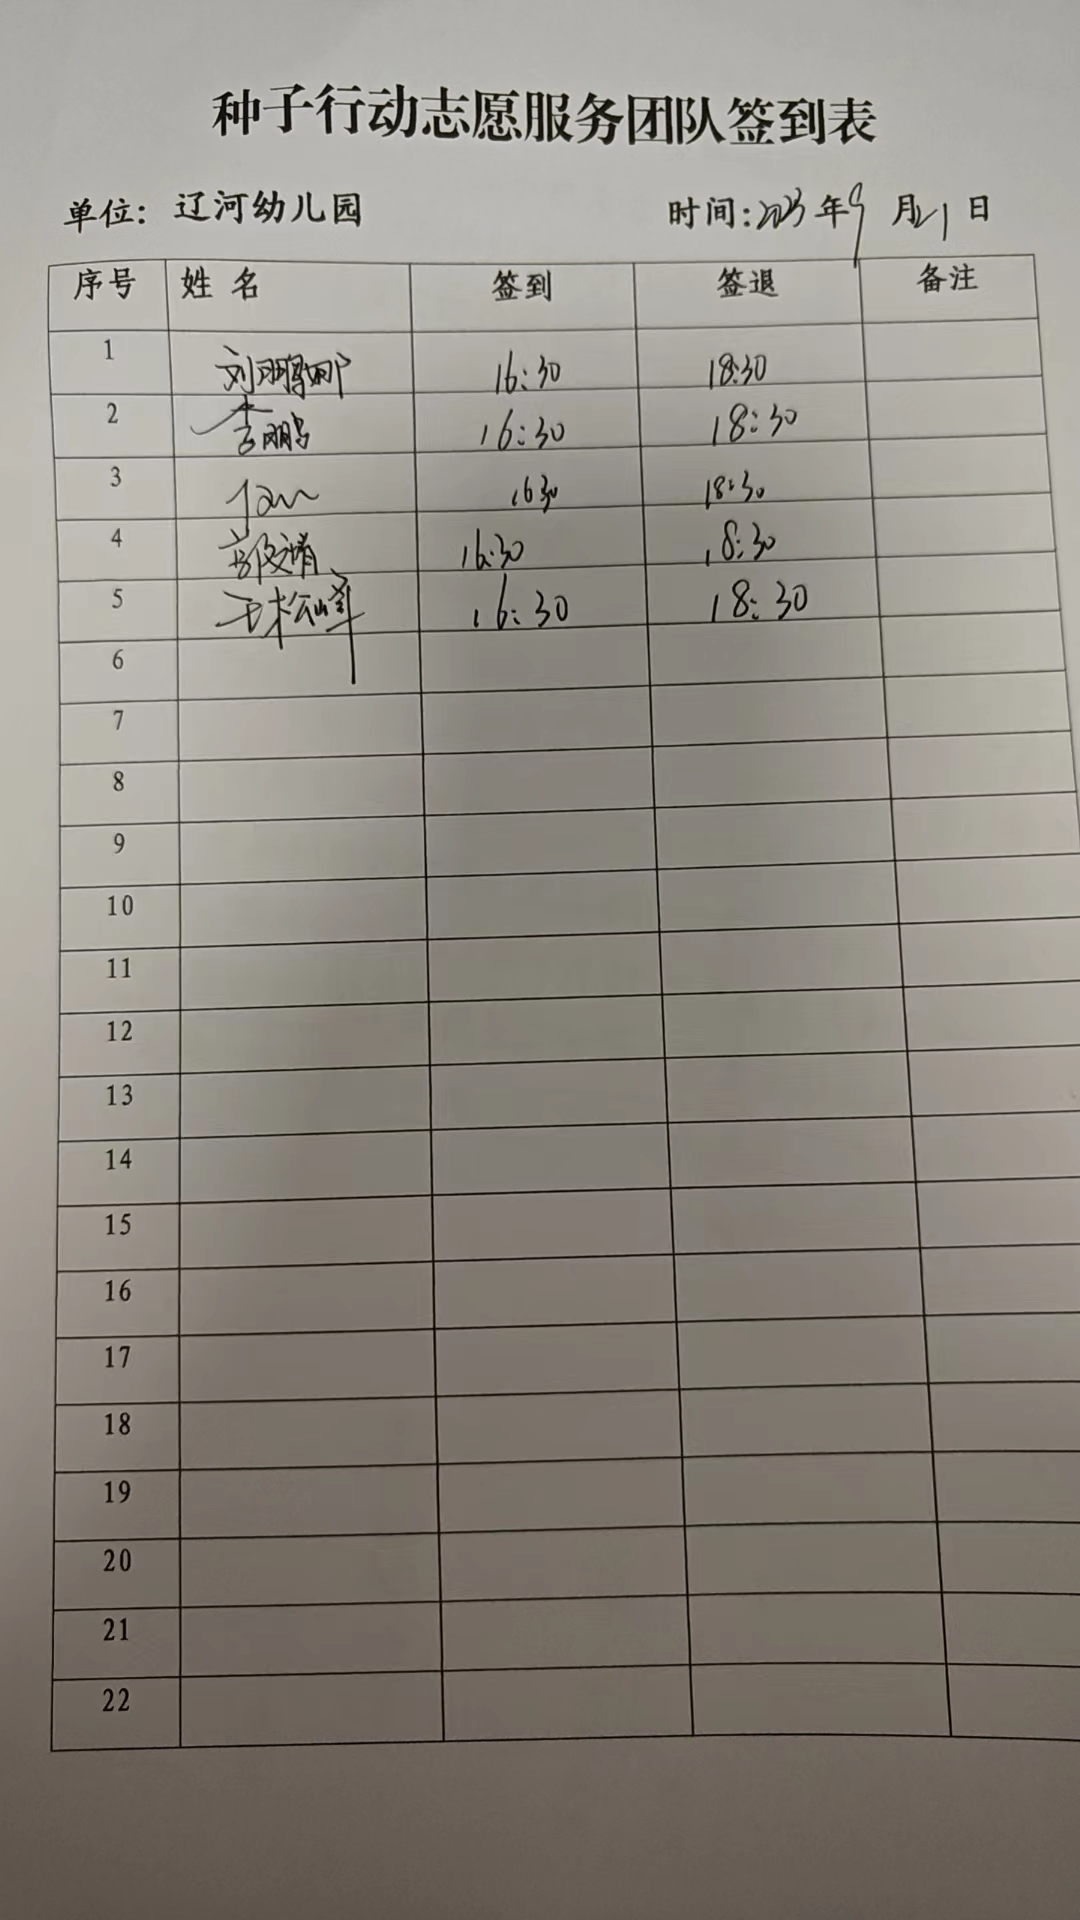 种子行动志愿服务团队签到表
单位: 辽河幼儿园 时间:2023年9月21日
序号 姓名 签到 签退 备注
1 刘鹏娜 16:30 18:30
2 李鹏 16:30 18:30
3 1630 18:30
4 16:30 18:30
5 王松峰 16:30 18:30
6
7
8
9
10
11
12
13
14
15
16
17
18
19
20
21
22